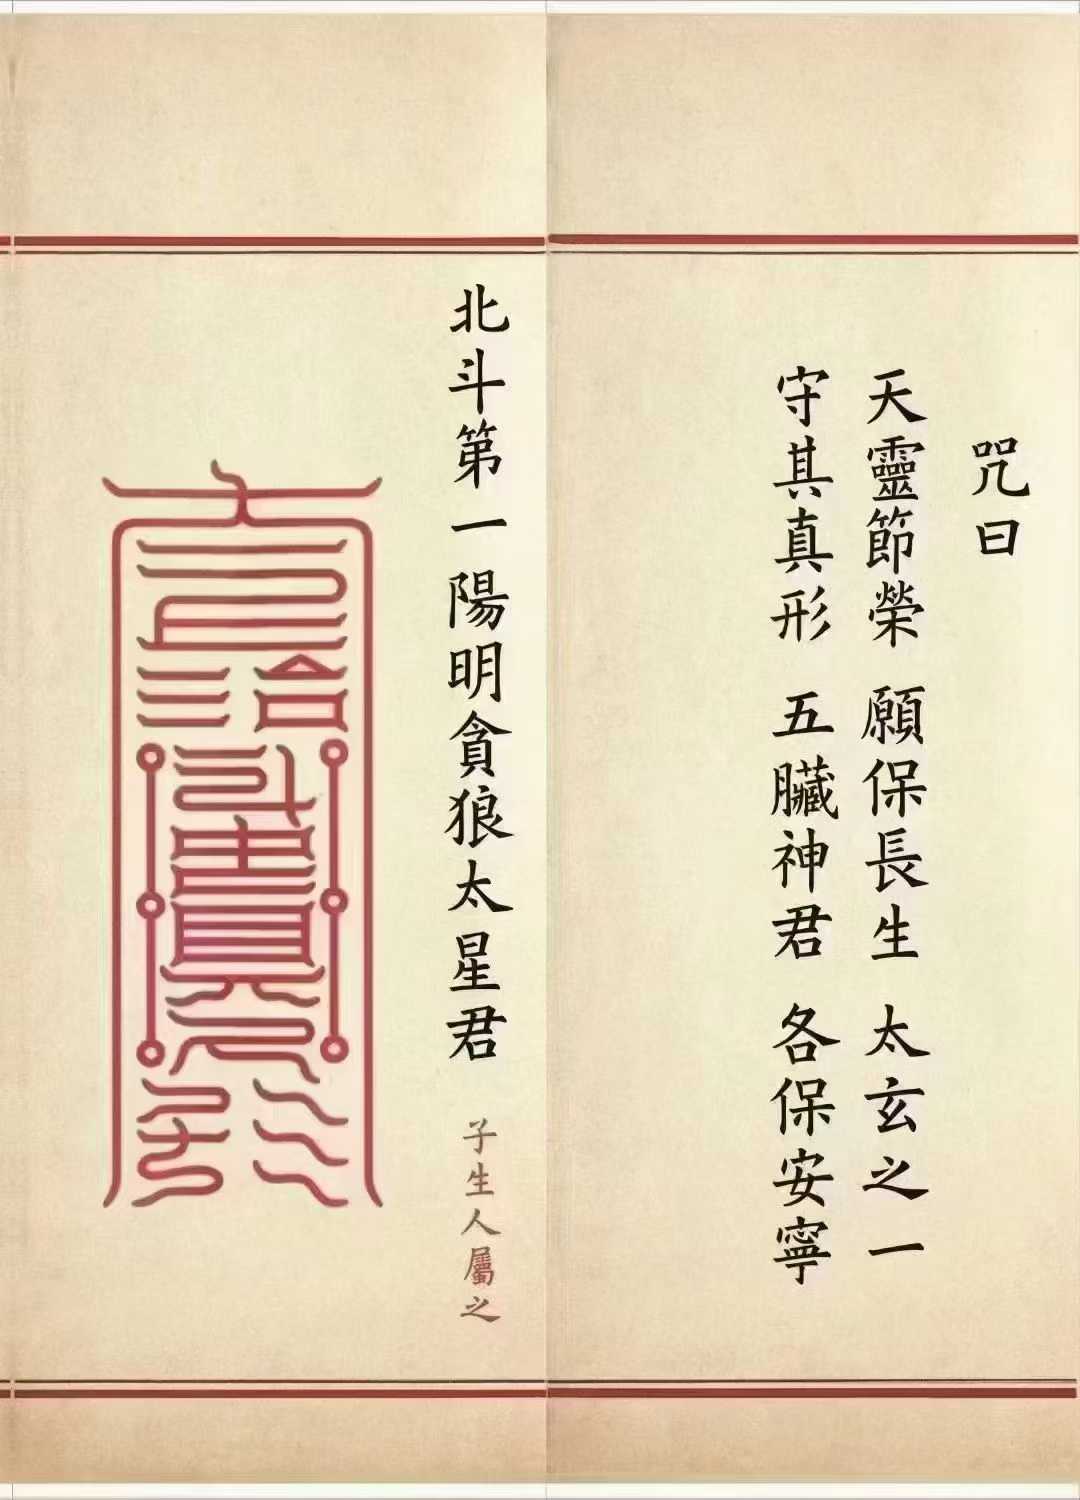 咒曰
天靈節榮 願保長生 太玄之一
守其真形 五臟神君 各保安寧
北斗第一陽明貪狼太星君
子生人屬之